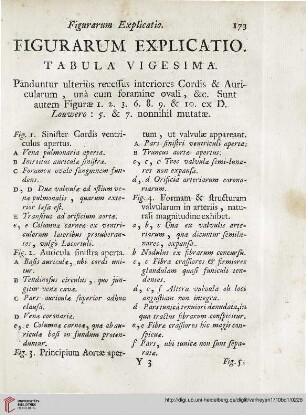 Figurarum Explicatio. 173
FIGURARUM EXPLICATIO.
TABULA VIGESIMA.
Panduntur ulteriùs recessus interiores Cordis & Auri-
cularum, unà cum foramine ovali, &c. Sunt
autem Figuræ 1. 2. 3. 6. 8. 9. & 10. ex D.
Louwero: 5. & 7. nonnihil mutatæ.
Fig. 1. Sinister Cordis ventri-
culus apertus.
A Vena pulmonaria aperta.
B Introitus auriculæ sinistræ.
C Foramen ovale sanguinem fun-
dens.
D, D Duæ valvulæ ad ostium ve-
næ pulmonalis, quarum exte-
rior sissa est.
E Transitus ad orificium aortæ.
e, e Columnæ carneæ ex ventri-
culorum lateribus protuberan-
tes, vulgò Lacertuli.
Fig. 2. Auricula sinistra aperta.
A Basis auriculæ, ubi cordi uni-
tur.
B Tendinosus circulus, quo jun-
gitur venæ cavæ.
C Pars auriculæ superior adhuc
clausa.
D Vena coronaria.
e, e Columnæ carneæ, quæ ab au-
riculæ basi in fundum proten-
duntur.
Fig. 3. Principium Aortæ aper-
tum, ut valvulæ appareant.
A Pars sinistri ventriculi aperta.
B Truncus aortæ apertus.
c, c, c Tres valvulæ semi-luna-
res non expansæ.
d, d Orificia arteriarum corona-
riarum.
Fig. 4. Formam & structuram
valvularum in arteriis, natu-
rali magnitudine exhibet.
a, b, c Una ex valvulis arte-
riarum, quæ dicuntur semilu-
nares, expansa.
b Nodulus ex fibrarum concursu.
c Fibra crassiores & firmiores
glandulam quasi funiculi ten-
dentes.
d, c, f Altera valvula ob loci
angustiam non integra.
d Pars tenuior
qua tractus fibrarum conspicitur.
e, e Fibræ crassiores hic magis con-
spicuæ.
f Pars, ubi tunicæ non sunt sepa-
ratæ.
Y 3 Fig. 5.
http://digi.ub.uni-heidelberg.de/diglit/verheyen1710bd1/0226